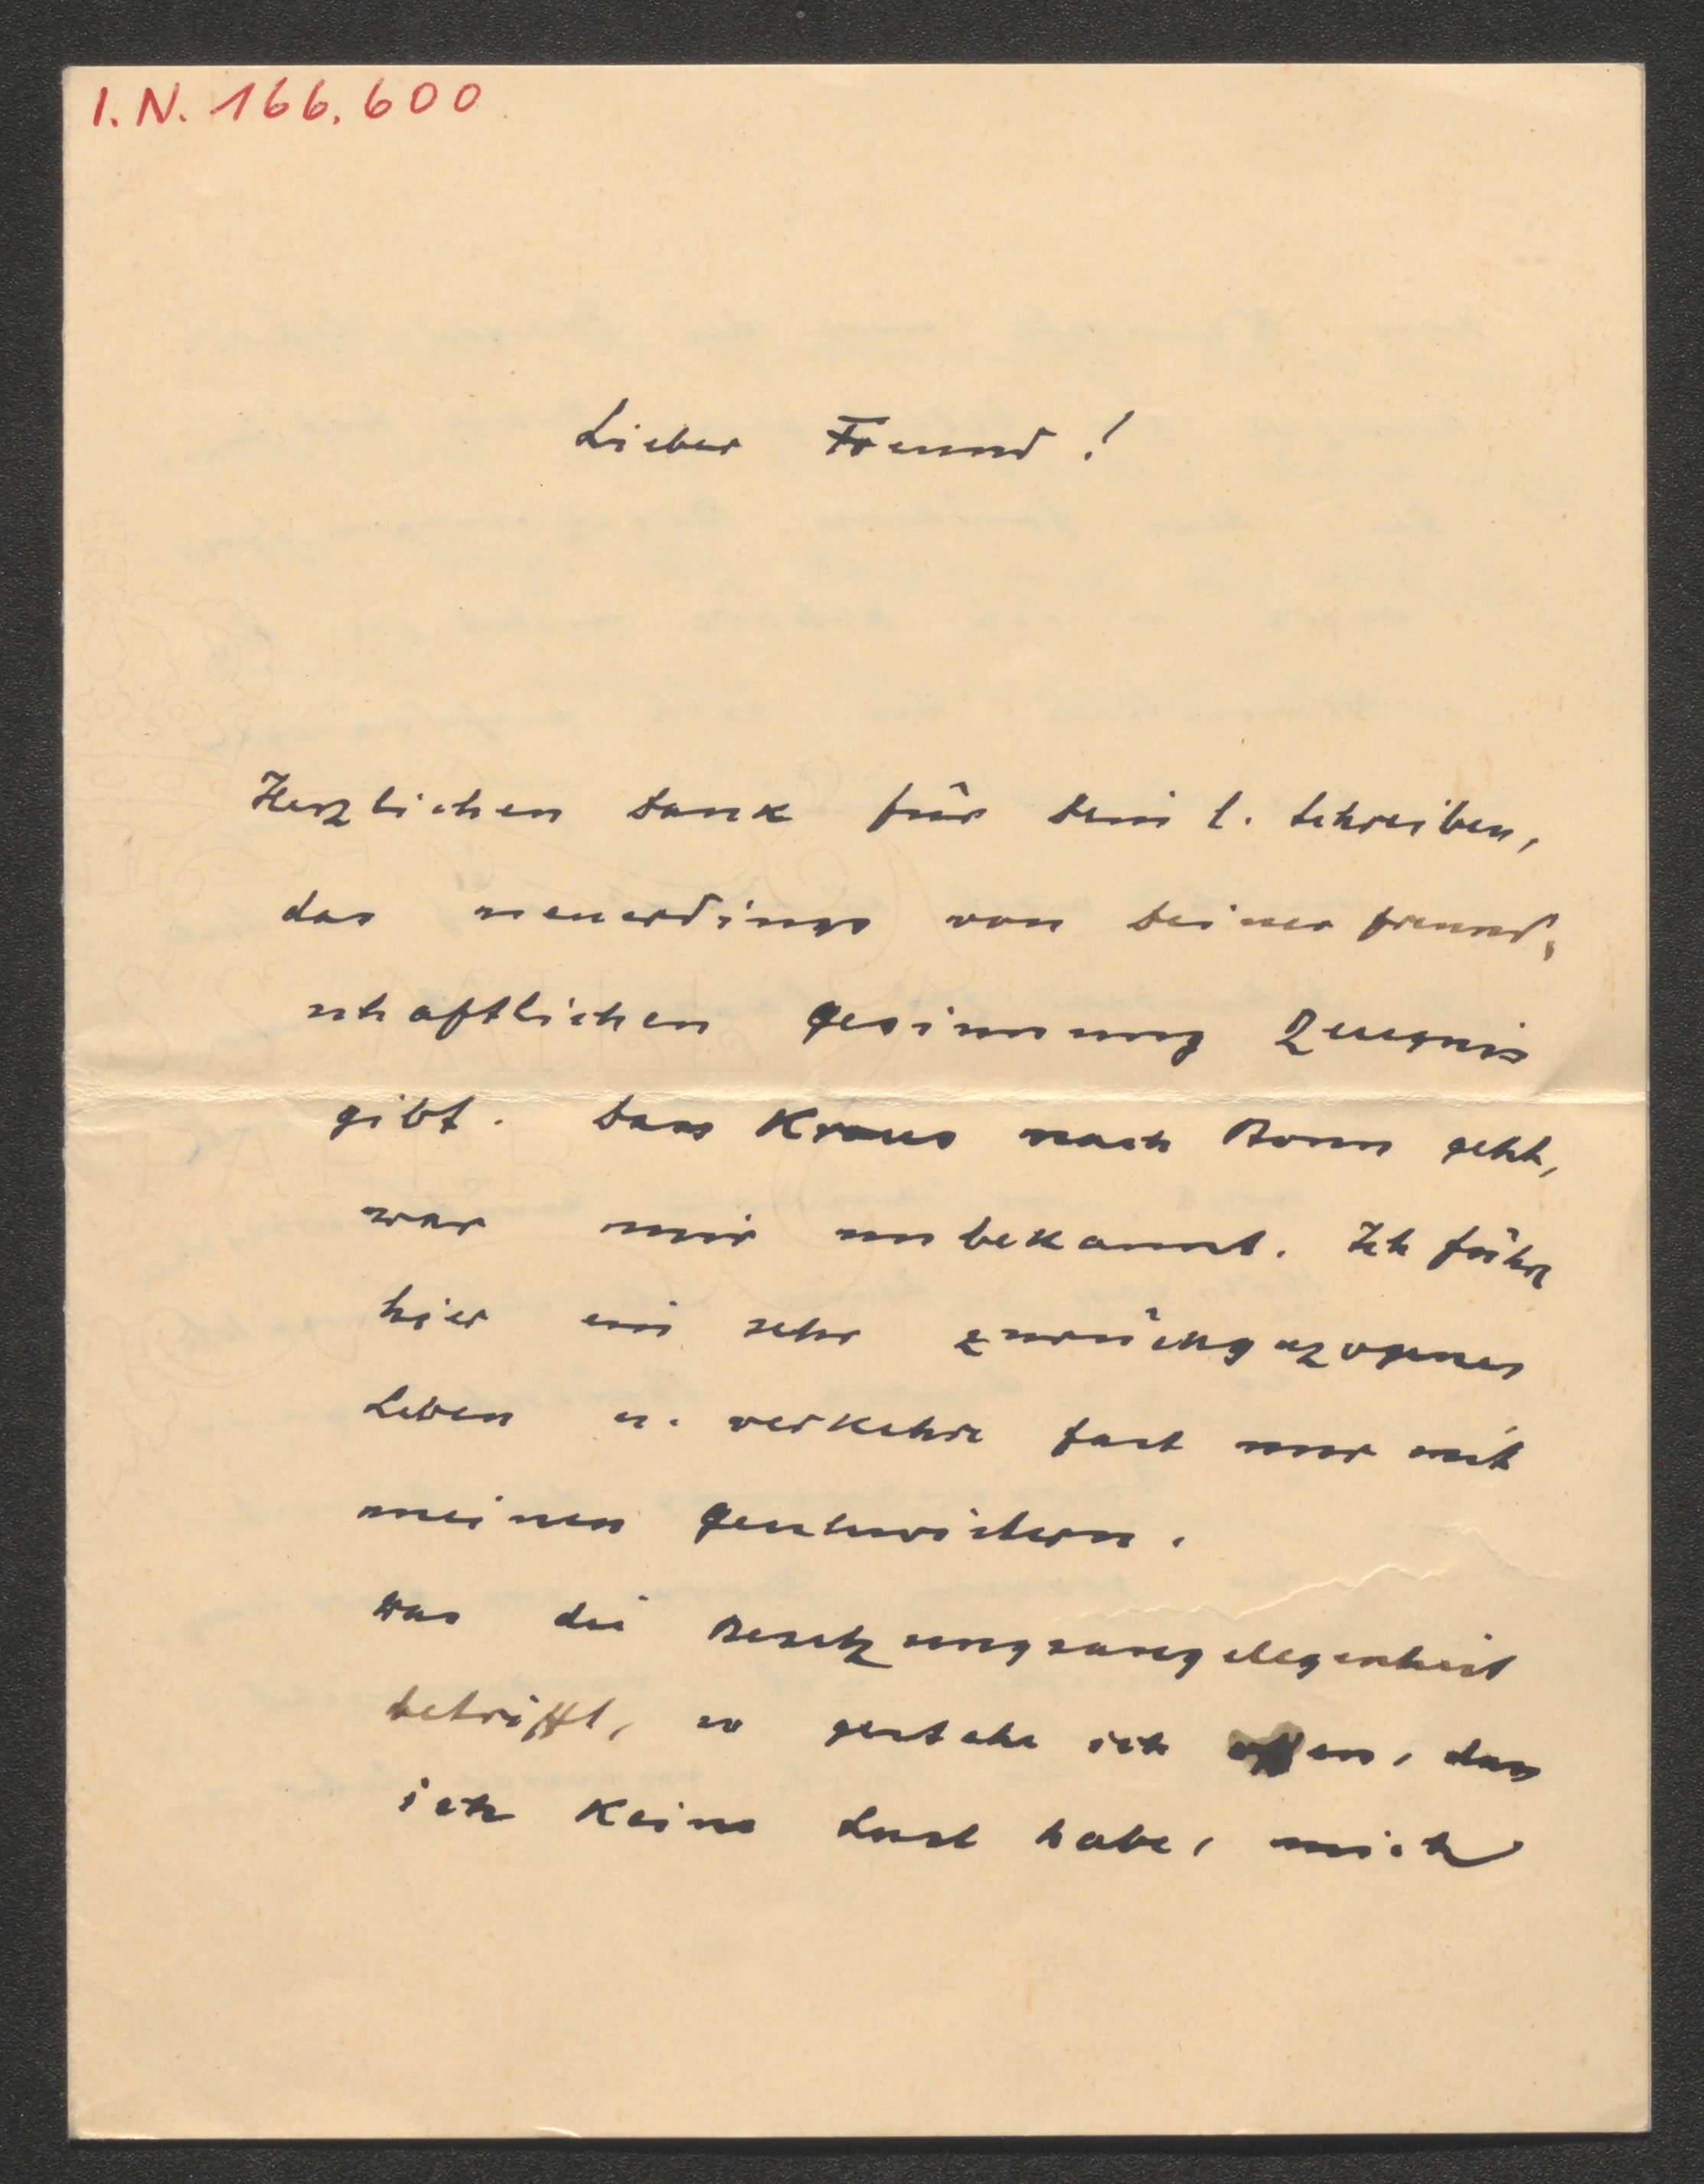 I.N. 166.600
Lieber Freund!
Herzlichen Dank für Dein l. Schreiben,
das neuerdings von Deiner freund-
schaftlichen Gesinnung Zeugnis
gibt. Dass Kraus nach Bonn geht,
war mir unbekannt. Ich führe
hier ein sehr zurückgezogenes
Leben u. verkehre fast nur mit
meinen Geschwistern.
Was die Besetzungsangelegenheit
betrifft, so gestehe ich offen, dass
ich keine Lust habe, mich